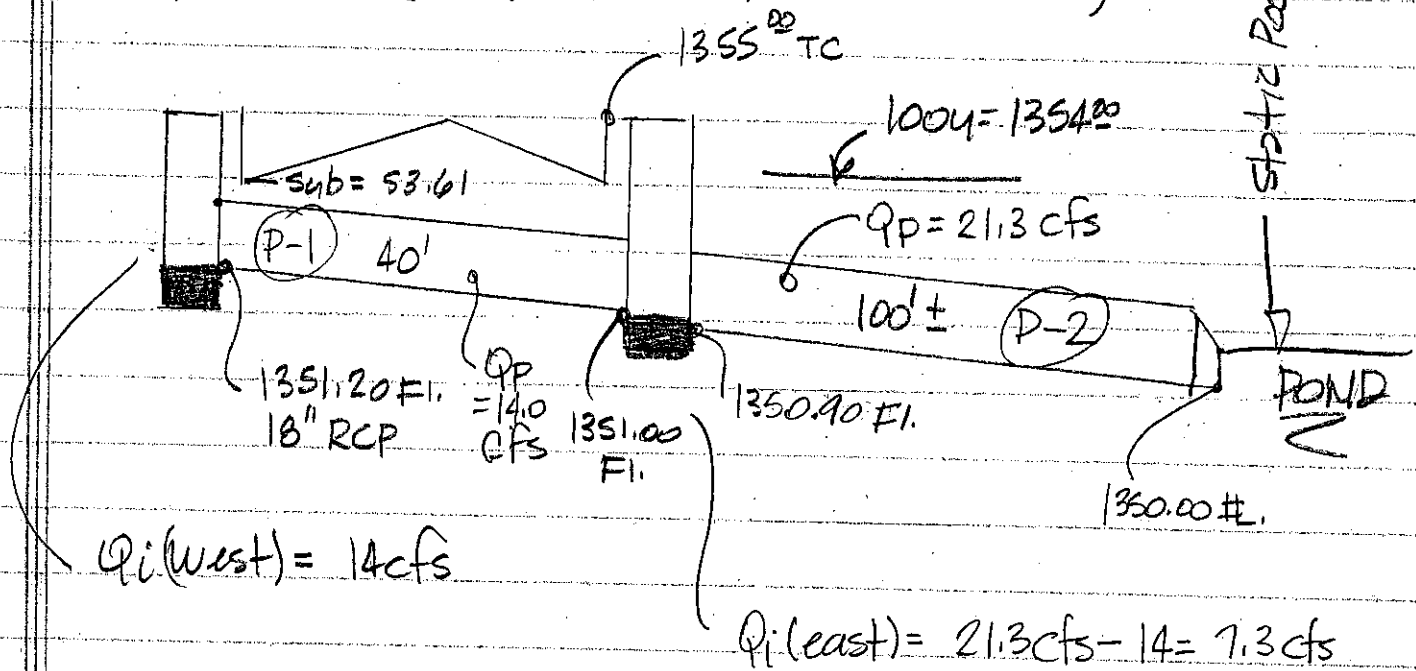 1355.00 TC
100y = 1354.00
Static
sub = 53.61
Qp = 21.3 cfs
P-1
40'
100' ±
P-2
1351.20 Fl.
18" RCP
Qp
= 14.0
cfs
1351.00
Fl.
1350.90 Fl.
POND
1350.00 FL.
Qi (west) = 14cfs
Qi (east) = 21.3cfs - 14 = 7.3 cfs